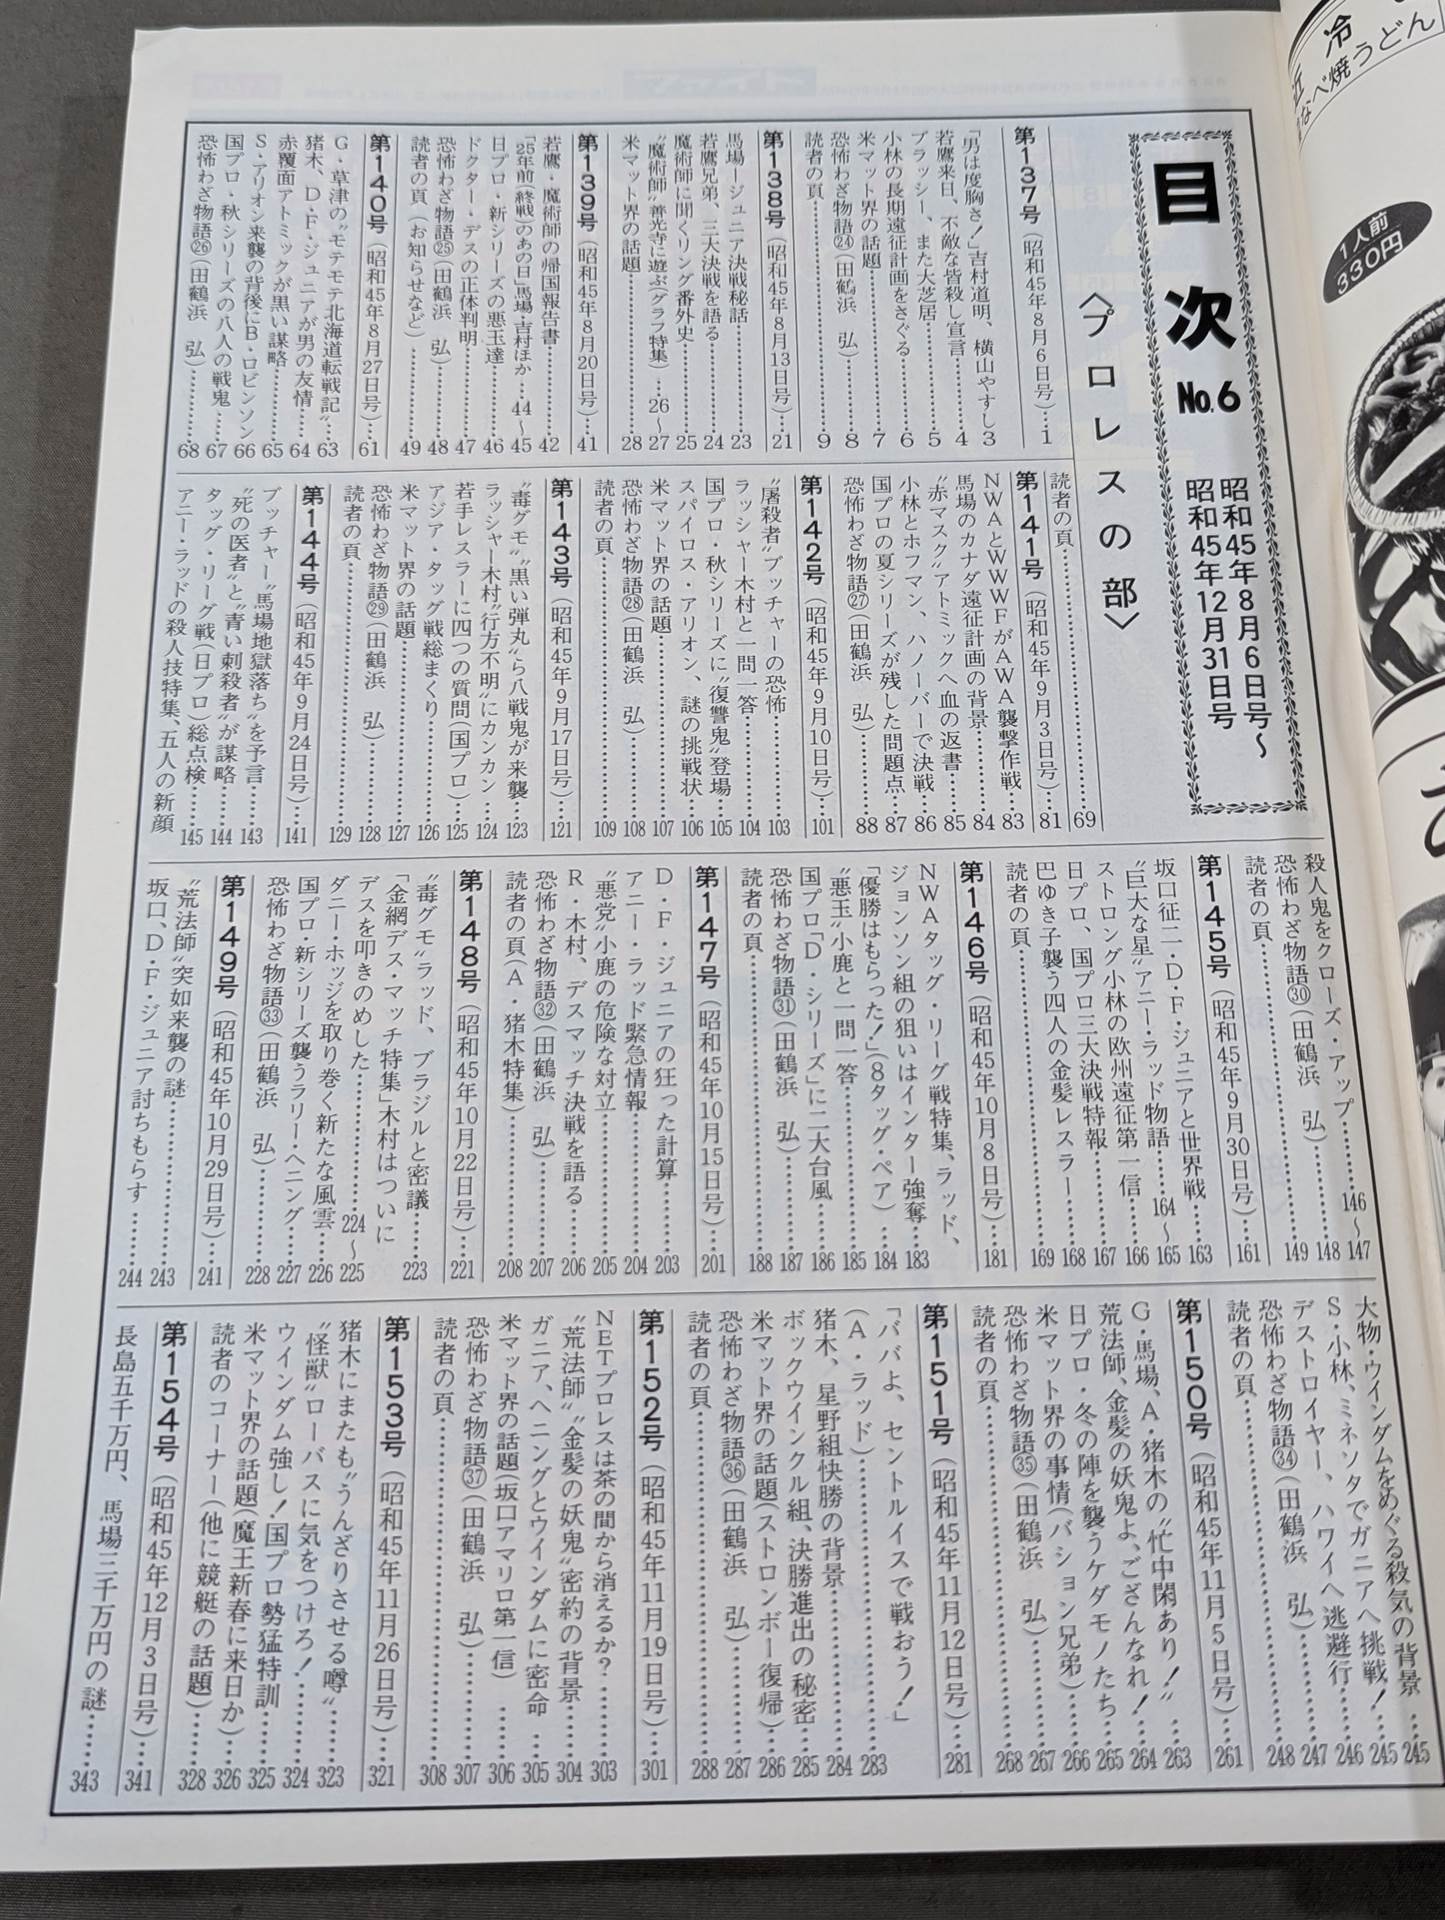 目次 No.6
昭和45年8月6日号〜
昭和45年12月31日号
〈プロレスの部〉
第137号（昭和45年8月6日号）…1
「男は度胸さ！」吉村道明、横山やすし3
若鷹来日、不敵な皆殺し宣言……4
ブラッシー、また大芝居……5
小林の長期遠征計画をさぐる……6
米マット界の話題……7
恐怖わざ物語㉔（田鶴浜　弘）……8
読者の頁……9
第138号（昭和45年8月13日号）…21
馬場－ジュニア決戦秘話……23
若鷹兄弟、三大決戦を語る……24
魔術師に聞くリング番外史……25
“魔術師”善光寺に遊ぶ（グラフ特集）…26〜27
米マット界の話題……28
第139号（昭和45年8月20日号）…41
若鷹・魔術師の帰国報告書……42
「25年前（終戦）のあの日」馬場・吉村ほか…44〜45
日プロ・新シリーズの悪玉達……46
ドクター・デスの正体判明……47
恐怖わざ物語㉕（田鶴浜　弘）……48
読者の頁（お知らせなど）……49
第140号（昭和45年8月27日号）…61
G・草津の“モテモテ北海道転戦記”…63
猪木、D・F・ジュニアが男の友情……64
赤覆面アトミックが黒い謀略……65
S・アリオン来襲の背後にB・ロビンソン 66
国プロ・秋シリーズの八人の戦鬼……67
恐怖わざ物語㉖（田鶴浜　弘）……68
読者の頁……69
第141号（昭和45年9月3日号）…81
NWAとWWWFがAWA襲撃作戦…83
馬場のカナダ遠征計画の背景……84
“赤マスク”アトミックへ血の返書……85
小林とホフマン、ハノーバーで決戦…86
国プロの夏シリーズが残した問題点…87
恐怖わざ物語㉗（田鶴浜　弘）……88
第142号（昭和45年9月10日号）…101
“屠殺者”ブッチャーの恐怖……103
ラッシャー木村と一問一答……104
国プロ・秋シリーズに“復讐鬼”登場…105
スパイロス・アリオン、謎の挑戦状…106
米マット界の話題……107
恐怖わざ物語㉘（田鶴浜　弘）……108
読者の頁……109
第143号（昭和45年9月17日号）…121
“毒グモ”“黒い弾丸”ら八戦鬼が来襲…123
ラッシャー木村“行方不明”にカンカン…124
若手レスラーに四つの質問（国プロ）…125
アジア・タッグ戦総まくり……126
米マット界の話題……127
恐怖わざ物語㉙（田鶴浜　弘）……128
読者の頁……129
第144号（昭和45年9月24日号）…141
ブッチャー“馬場地獄落ち”を予言…143
“死の医者”と“青い刺殺者”が謀略…144
タッグ・リーグ戦（日プロ）総点検…145
アニー・ラッドの殺人技特集、五人の新顔
殺人鬼をクローズ・アップ……146〜147
恐怖わざ物語㉚（田鶴浜　弘）……148
読者の頁……149
第145号（昭和45年9月30日号）…161
坂口征二・D・F・ジュニアと世界戦…163
“巨大な星”アニー・ラッド物語……164〜165
ストロング小林の欧州遠征第一信……166
日プロ、国プロ三大決戦特報……167
巴ゆき子襲う四人の金髪レスラー……168
読者の頁……169
第146号（昭和45年10月8日号）…181
NWAタッグ・リーグ戦特集、ラッド、
ジョンソン組の狙いはインター強奪…183
「優勝はもらった！」（8タッグ・ペア）…184
“悪玉”小鹿と一問一答……185
国プロ「D・シリーズ」に二大台風……186
恐怖わざ物語㉛（田鶴浜　弘）……187
読者の頁……188
第147号（昭和45年10月15日号）…201
D・F・ジュニアの狂った計算……203
アニー・ラッド緊急情報……204
“悪党”小鹿の危険な対立……205
R・木村、デスマッチ決戦を語る……206
恐怖わざ物語㉜（田鶴浜　弘）……207
読者の頁（A・猪木特集）……208
第148号（昭和45年10月22日号）…221
“毒グモ”ラッド、ブラジルと密議…223
「金網デス・マッチ特集」木村はついに
デスを叩きのめした……224〜225
ダニー・ホッジを取り巻く新たな風雲…226
国プロ・新シリーズ襲うラリー・ヘニング…227
恐怖わざ物語㉝（田鶴浜　弘）……228
第149号（昭和45年10月29日号）…241
“荒法師”突如来襲の謎……243
坂口、D・F・ジュニア討ちもらす…244
大物・ウインダムをめぐる殺気の背景…245
S・小林、ミネソタでガニアへ挑戦！…245
デストロイヤー、ハワイへ逃避行……246
恐怖わざ物語㉞（田鶴浜　弘）……247
読者の頁……248
第150号（昭和45年11月5日号）…261
G・馬場、A・猪木の“忙中閑あり！”…263
荒法師、金髪の妖鬼よ、ござんなれ！…264
日プロ・冬の陣を襲うケダモノたち…265
米マット界の事情（バション兄弟）…266
恐怖わざ物語㉟（田鶴浜　弘）……267
読者の頁……268
第151号（昭和45年11月12日号）…281
「ババよ、セントルイスで戦おう！」
（A・ラッド）……283
猪木、星野組快勝の背景……284
ボックウインクル組、決勝進出の秘密…285
米マット界の話題（ストロンボー復帰）…286
恐怖わざ物語㊱（田鶴浜　弘）……287
読者の頁……288
第152号（昭和45年11月19日号）…301
NETプロレスは茶の間から消えるか？…303
“荒法師”“金髪の妖鬼”密約の背景…304
ガニア、ヘニングとウインダムに密命…305
米マット界の話題（坂口アマリロ第一信）…306
恐怖わざ物語㊲（田鶴浜　弘）……307
読者の頁……308
第153号（昭和45年11月26日号）…321
猪木にまたも“うんざりさせる噂”…323
“怪獣”ローバスに気をつけろ！……324
ウインダム強し！国プロ勢猛特訓……325
米マット界の話題（魔王新春に来日か）…326
読者のコーナー（他に競艇の話題）…328
第154号（昭和45年12月3日号）…341
長島五千万円、馬場三千万円の謎……343
冷
なべ焼うどん
1人前
330円